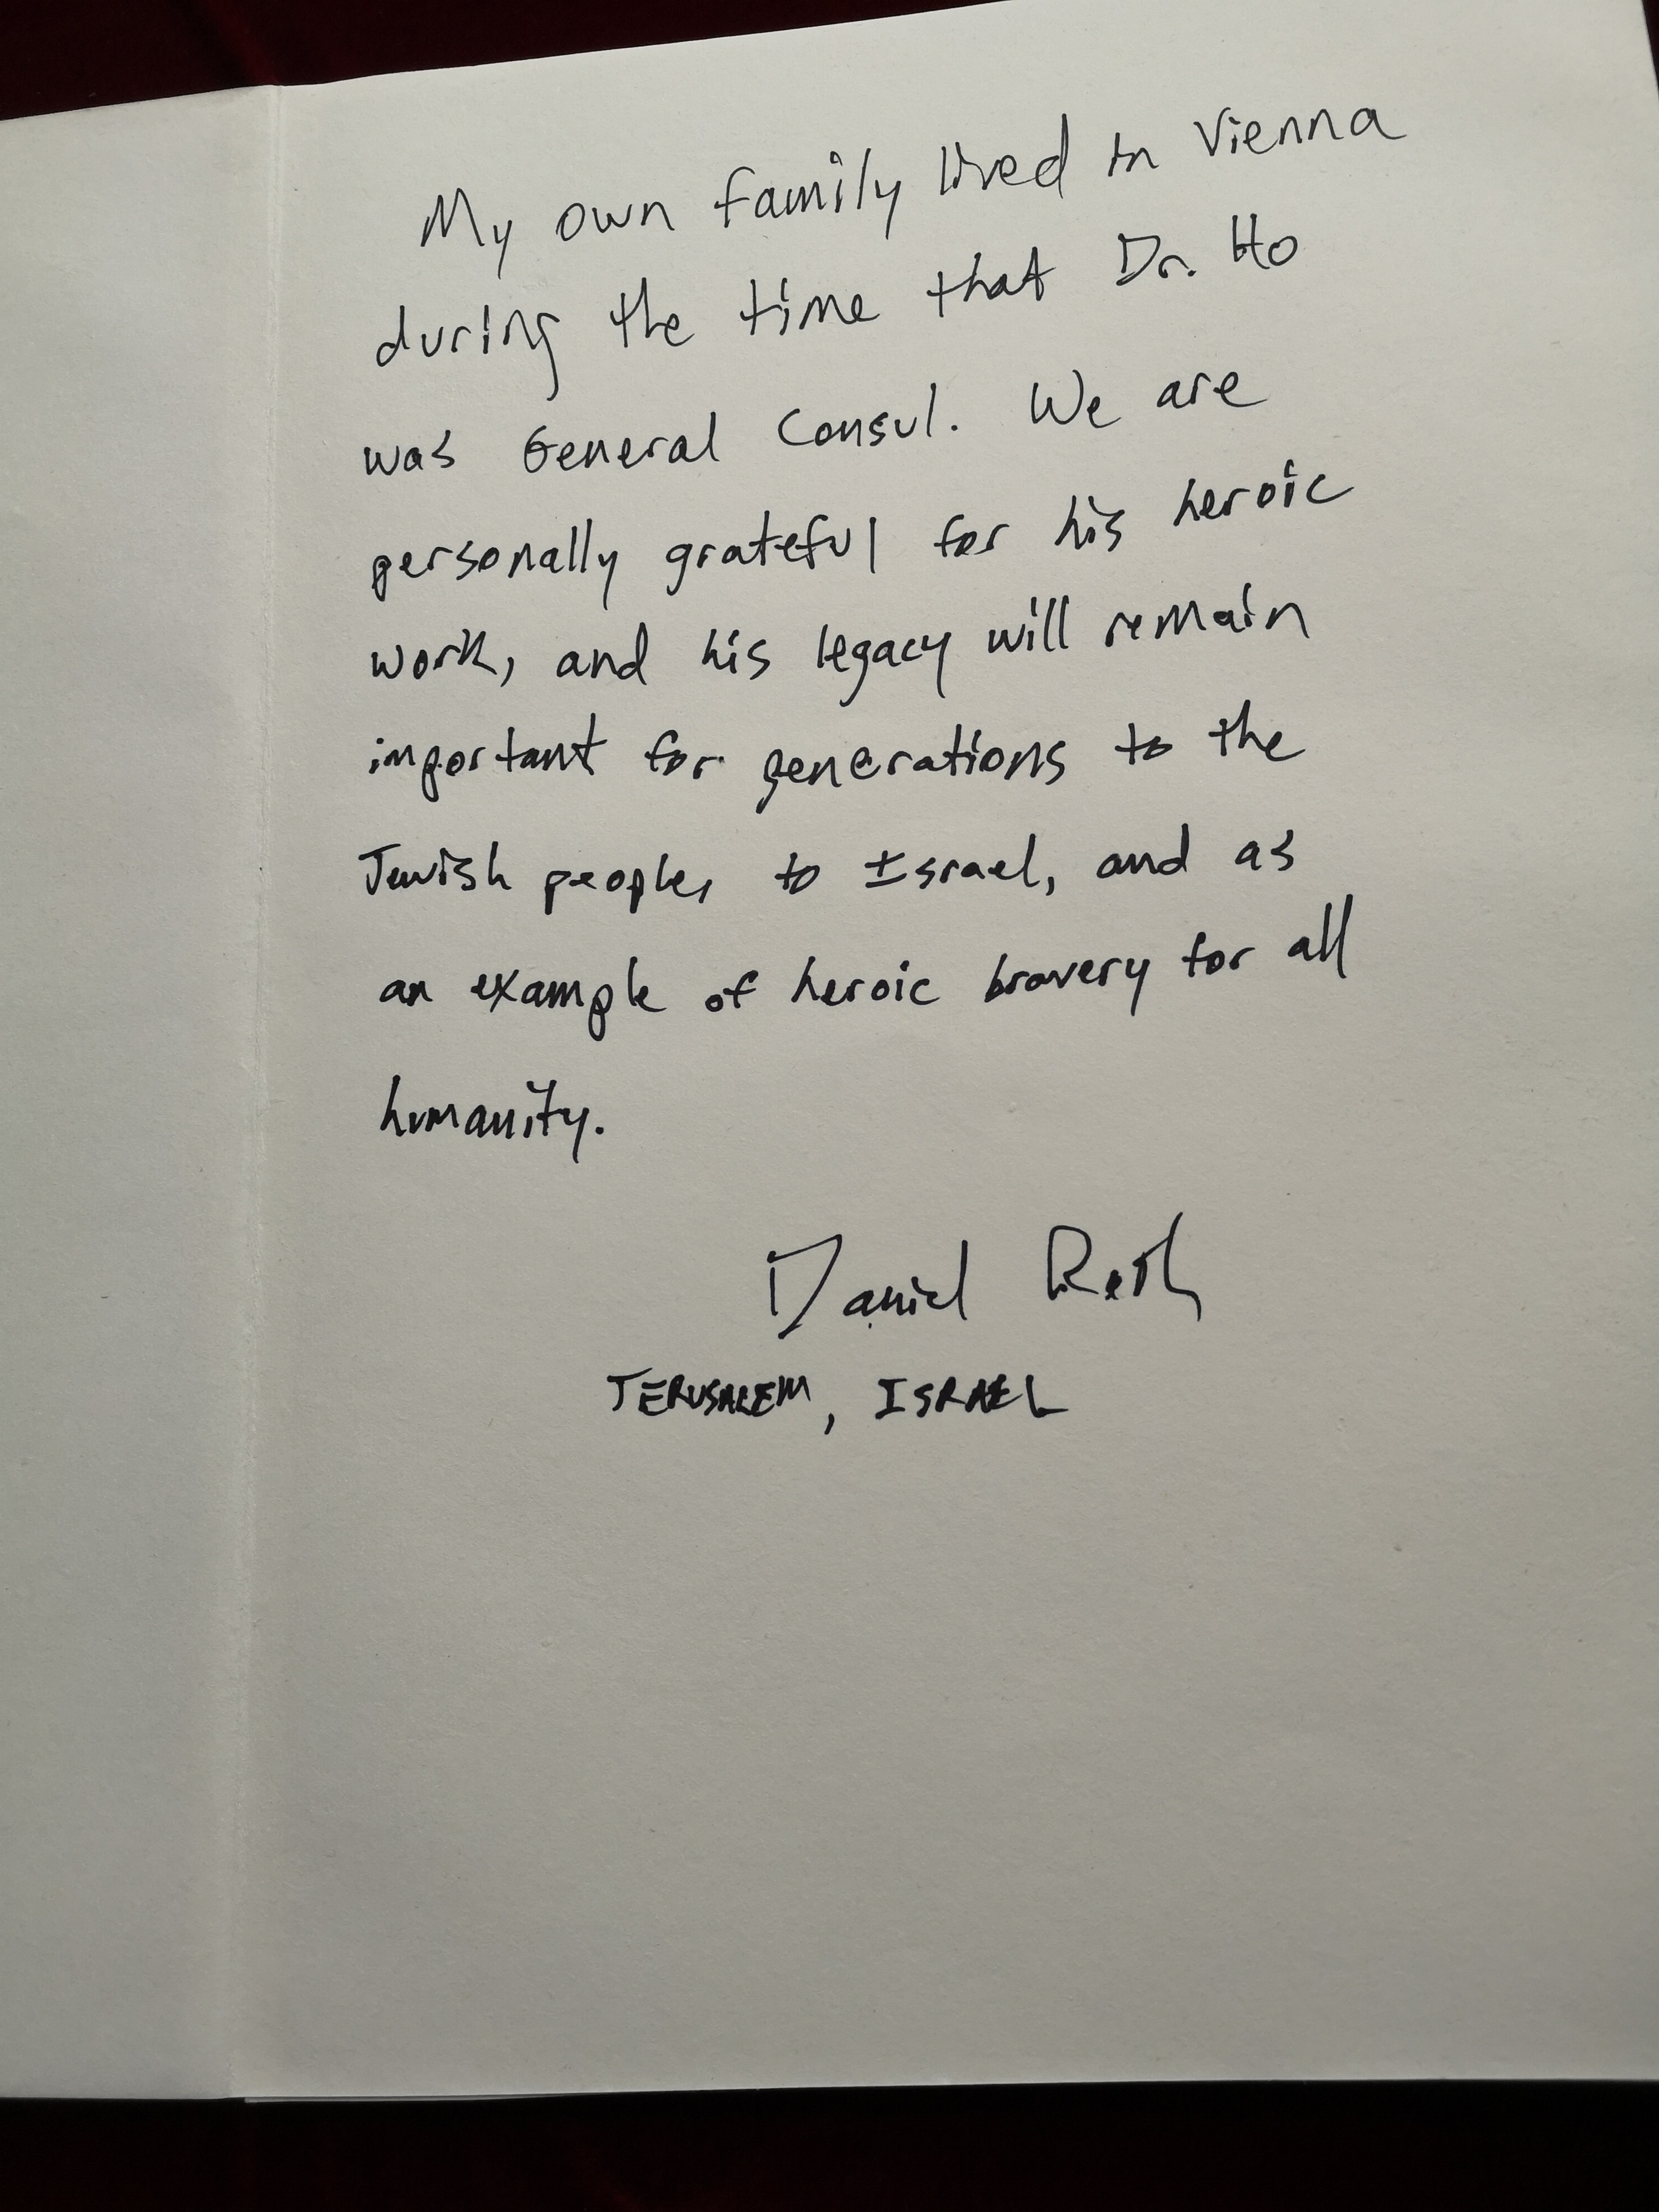 My own family lived in Vienna
during the time that Dr. Ho
was General Consul. We are
personally grateful for his heroic
work, and his legacy will remain
important for generations to the
Jewish people, to Israel, and as
an example of heroic bravery for all
humanity.
Daniel Roth
JERUSALEM, ISRAEL